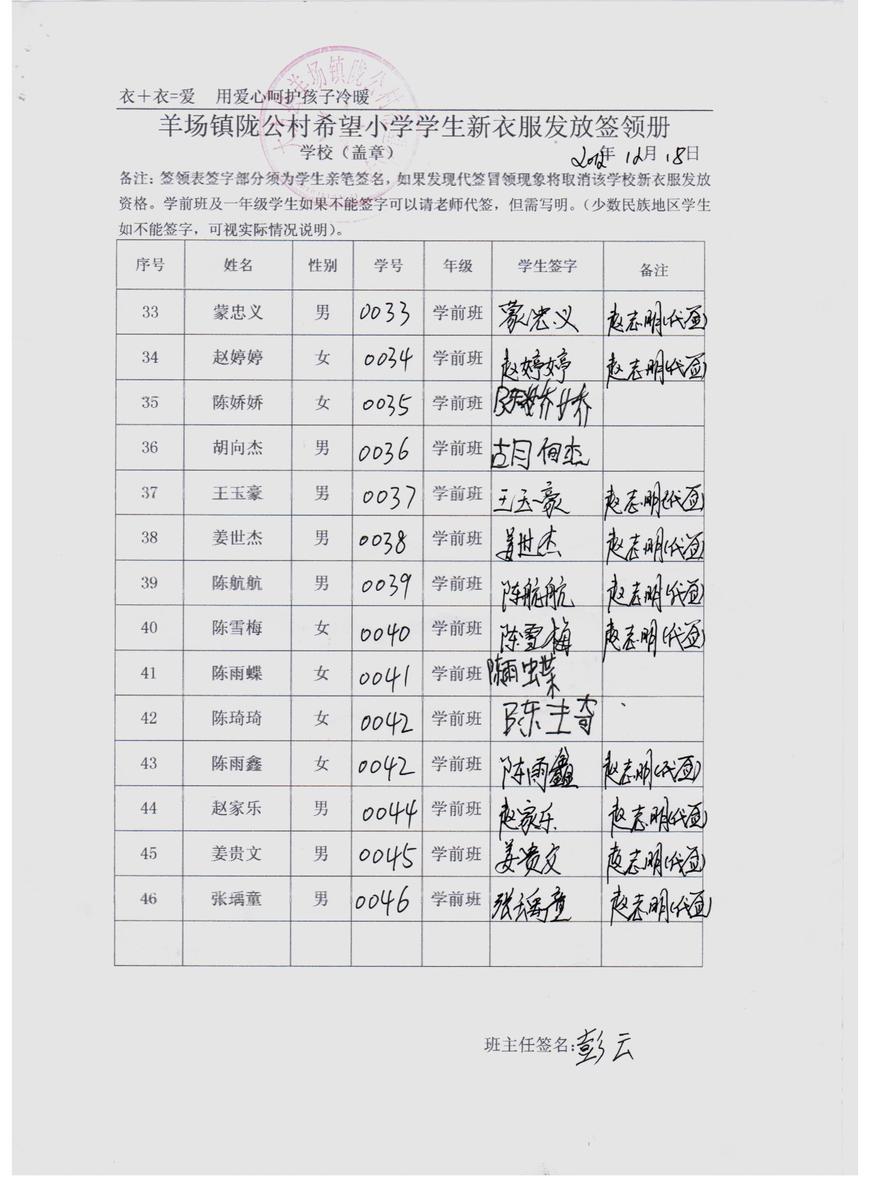 衣+衣=爱 用爱心呵护孩子冷暖
羊场镇陇公村希望小学学生新衣服发放签领册
学校（盖章） 2012年12月18日
备注：签领表签字部分须为学生亲笔签名，如果发现代签冒领现象将取消该学校新衣服发放
资格。学前班及一年级学生如果不能签字可以请老师代签，但需写明。（少数民族地区学生
如不能签字，可视实际情况说明）。
序号 姓名 性别 学号 年级 学生签字 备注
33 蒙忠义 男 0033 学前班 蒙忠义 赵志明(代签)
34 赵婷婷 女 0034 学前班 赵婷婷 赵志明(代签)
35 陈娇娇 女 0035 学前班 陈娇娇
36 胡向杰 男 0036 学前班 胡向杰
37 王玉豪 男 0037 学前班 王玉豪 赵志明(代签)
38 姜世杰 男 0038 学前班 姜世杰 赵志明(代签)
39 陈航航 男 0039 学前班 陈航航 赵志明(代签)
40 陈雪梅 女 0040 学前班 陈雪梅 赵志明(代签)
41 陈雨蝶 女 0041 学前班 陈雨蝶
42 陈琦琦 女 0042 学前班 陈琦
43 陈雨鑫 女 0042 学前班 陈雨鑫 赵志明(代签)
44 赵家乐 男 0044 学前班 赵家乐 赵志明(代签)
45 姜贵文 男 0045 学前班 姜贵文 赵志明(代签)
46 张瑀童 男 0046 学前班 张瑀童 赵志明(代签)
班主任签名:彭云